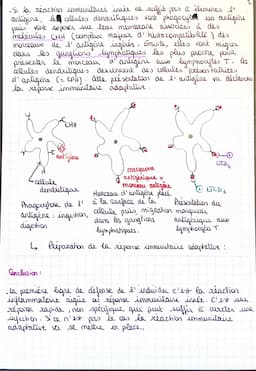 si la réaction immunitaire innée ne suffit pas à éliminer l'
antigène, les cellules dendritiques vont phagocyter un antigène
puis vont exposer sur leur membrane associés à des
molécules CMH (complexe majeur d'histocompatibilité) des
morceaux de l'antigène ingéré. Ensuite, elles vont migrer
dans les ganglions lymphatiques les plus proches pour
présenter le morceau d'antigène aux lymphocytes T. les
cellules dendritiques deviennent des cellules présentatrices
d'antigène (= CPA). Cette présentation de l'antigène va déclencher
la réponse immunitaire adaptative.
CMH
antigène
cellule
dendritique
marqueur
antigénique =
morceau antigène
LTCD4
LTCD8
Phagocytose de l'
antigène : ingestion,
digestion
Morceau d'antigène placé
à la surface de la
cellule puis migration
dans les ganglions
lymphatiques.
Présentation du
marqueur
antigénique aux
lymphocytes T
↳ Préparation de la réponse immunitaire adaptative.
Conclusion :
la première ligne de défense de l'individu c'est la réaction
inflammatoire aiguë ou réponse immunitaire innée. C'est une
réponse rapide, non spécifique qui peut suffir à arrêter une
infection. Si ce n'est pas le cas la réaction immunitaire
adaptative va se mettre en place.